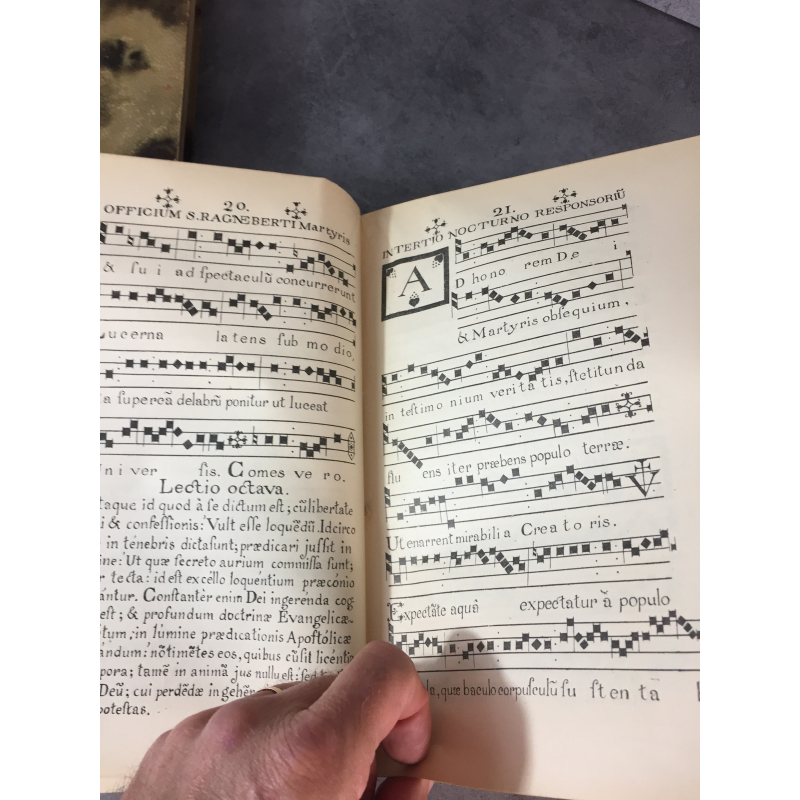 20.
OFFICIUM S. RAGNEBERTI Martyris
& su i ad spectaculū concurrerunt
Lucerna latens sub mo dio,
a supercā delabrū ponitur ut luceat
ni ver sis. Comes ve ro.
Lectio octava.
taque id quod à se dictum est; cū libertate
i & confessionis: Vult esse loquēdū. Idcirco
in tenebris dictasunt; prædicari jussit in
ine: Ut quæ secreto aurium commissa sunt;
r tecta: id est excelso loquentium præcónio
ántur. Constantèr enim Dei ingerénda cog
est; & profundum doctrinæ Evangelicæ
itum; in lúmine prædicationis Apostólicæ
ándum: nō timētes eos, quibus cū sit licéntia
pora; tamē in animā jus nullu est: sed
Deū; cui perdēdæ in gehēn
potestas.
21.
IN TERTIO NOCTURNO RESPONSORIŪ
A
D hono rem De i
& Martyris obsequium,
in testimo nium veri ta tis, stetit unda
flu ens iter præbens populo terræ.
℣
Ut enarrent mirabilia Crea to ris.
Expectāte aquā expectatur à populo
la, quæ baculo corpusculū su sten ta